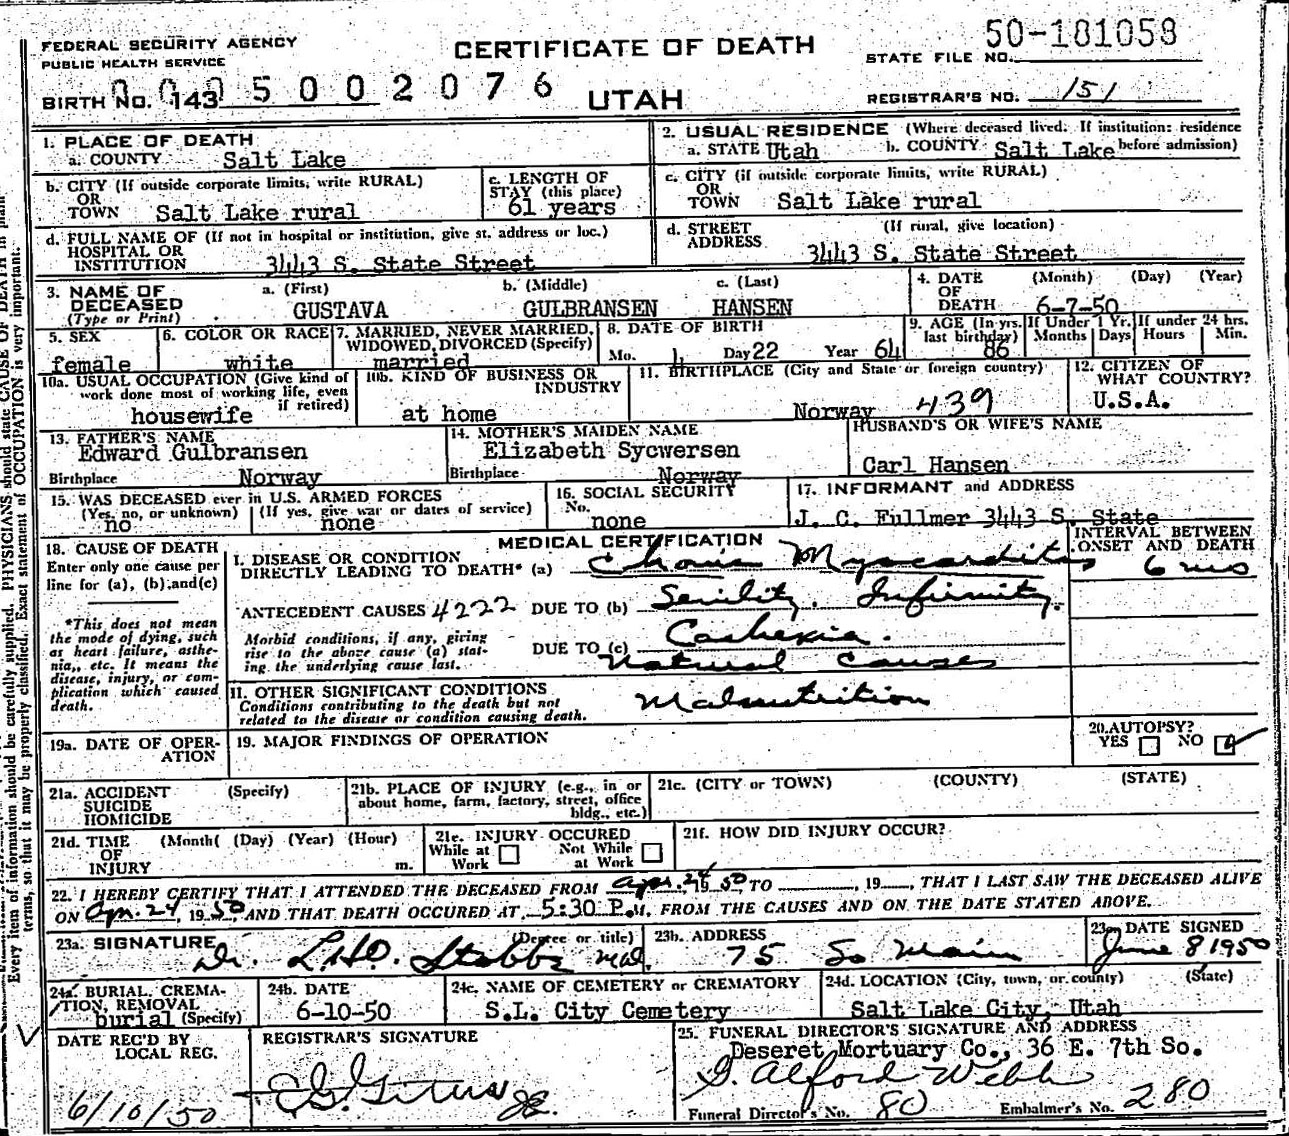 FEDERAL SECURITY AGENCY
PUBLIC HEALTH SERVICE
CERTIFICATE OF DEATH
50-181058
STATE FILE NO.
BIRTH NO. 143
0005002076
UTAH
REGISTRAR'S NO. 151
1. PLACE OF DEATH
a. COUNTY Salt Lake
2. USUAL RESIDENCE (Where deceased lived. If institution: residence
a. STATE Utah b. COUNTY Salt Lake before admission)
b. CITY (If outside corporate limits, write RURAL)
OR
TOWN Salt Lake rural
c. LENGTH OF
STAY (this place)
61 years
c. CITY (if outside corporate limits, write RURAL)
OR
TOWN Salt Lake rural
d. FULL NAME OF (If not in hospital or institution, give st. address or loc.)
HOSPITAL OR
INSTITUTION 3443 S. State Street
d. STREET (If rural, give location)
ADDRESS 3443 S. State Street
3. NAME OF a. (First) b. (Middle) c. (Last)
DECEASED
(Type or Print) GUSTAVA GULBRANSEN HANSEN
4. DATE (Month) (Day) (Year)
OF
DEATH 6-7-50
5. SEX
female
6. COLOR OR RACE
white
7. MARRIED, NEVER MARRIED,
WIDOWED, DIVORCED (Specify)
married
8. DATE OF BIRTH
Mo. 1 Day 22 Year 64
9. AGE (In yrs.
last birthday)
86
If Under 1 Yr.
Months Days
If under 24 hrs.
Hours Min.
10a. USUAL OCCUPATION (Give kind of
work done most of working life, even
if retired)
housewife
10b. KIND OF BUSINESS OR
INDUSTRY
at home
11. BIRTHPLACE (City and State or foreign country)
Norway 439
12. CITIZEN OF
WHAT COUNTRY?
U.S.A.
13. FATHER'S NAME
Edward Gulbransen
Birthplace Norway
14. MOTHER'S MAIDEN NAME
Elizabeth Sycwersen
Birthplace Norway
HUSBAND'S OR WIFE'S NAME
Carl Hansen
15. WAS DECEASED ever in U.S. ARMED FORCES
(Yes, no, or unknown) (If yes, give war or dates of service)
no none
16. SOCIAL SECURITY
No.
none
17. INFORMANT and ADDRESS
J. C. Fullmer 3443 S. State
18. CAUSE OF DEATH
Enter only one cause per
line for (a), (b), and (c)
*This does not mean
the mode of dying, such
as heart failure, asthe-
nia,, etc. It means the
disease, injury, or com-
plication which caused
death.
MEDICAL CERTIFICATION
INTERVAL BETWEEN
ONSET AND DEATH
I. DISEASE OR CONDITION
DIRECTLY LEADING TO DEATH* (a) Chronic Myocarditis 6 mos
ANTECEDENT CAUSES 4222 DUE TO (b) Senility. Infirmity.
Morbid conditions, if any, giving
rise to the above cause (a) stat-
ing the underlying cause last.
Cachexia.
DUE TO (c)
Natural Causes
II. OTHER SIGNIFICANT CONDITIONS
Conditions contributing to the death but not
related to the disease or condition causing death.
Malnutrition
19a. DATE OF OPER-
ATION
19. MAJOR FINDINGS OF OPERATION
20. AUTOPSY?
YES NO
21a. ACCIDENT (Specify)
SUICIDE
HOMICIDE
21b. PLACE OF INJURY (e.g., in or
about home, farm, factory, street, office
bldg., etc.)
21c. (CITY or TOWN) (COUNTY) (STATE)
21d. TIME (Month( (Day) (Year) (Hour)
OF
INJURY m.
21e. INJURY OCCURED
While at Not While
Work at Work
21f. HOW DID INJURY OCCUR?
22. I HEREBY CERTIFY THAT I ATTENDED THE DECEASED FROM Apr. 24, 19 50 TO , 19 , THAT I LAST SAW THE DECEASED ALIVE
ON Apr. 24, 19 50 AND THAT DEATH OCCURED AT 5:30 P.M. FROM THE CAUSES AND ON THE DATE STATED ABOVE.
23a. SIGNATURE (Degree or title)
Dr. L.H.O. Stobbe MD.
23b. ADDRESS
75 So Main
23c. DATE SIGNED
June 8 1950
24a. BURIAL, CREMA-
TION, REMOVAL
burial (Specify)
24b. DATE
6-10-50
24c. NAME OF CEMETERY or CREMATORY
S.L. City Cemetery
24d. LOCATION (City, town, or county) (State)
Salt Lake City, Utah
DATE REC'D BY
LOCAL REG.
6/10/50
REGISTRAR'S SIGNATURE
25. FUNERAL DIRECTOR'S SIGNATURE AND ADDRESS
Deseret Mortuary Co., 36 E. 7th So.
G. Alford Webb
Funeral Director's No. 80 Embalmer's No. 280
Every item of information should be carefully supplied. PHYSICIANS should state CAUSE OF DEATH in plain
terms, so that it may be properly classified. Exact statement of OCCUPATION is very important.